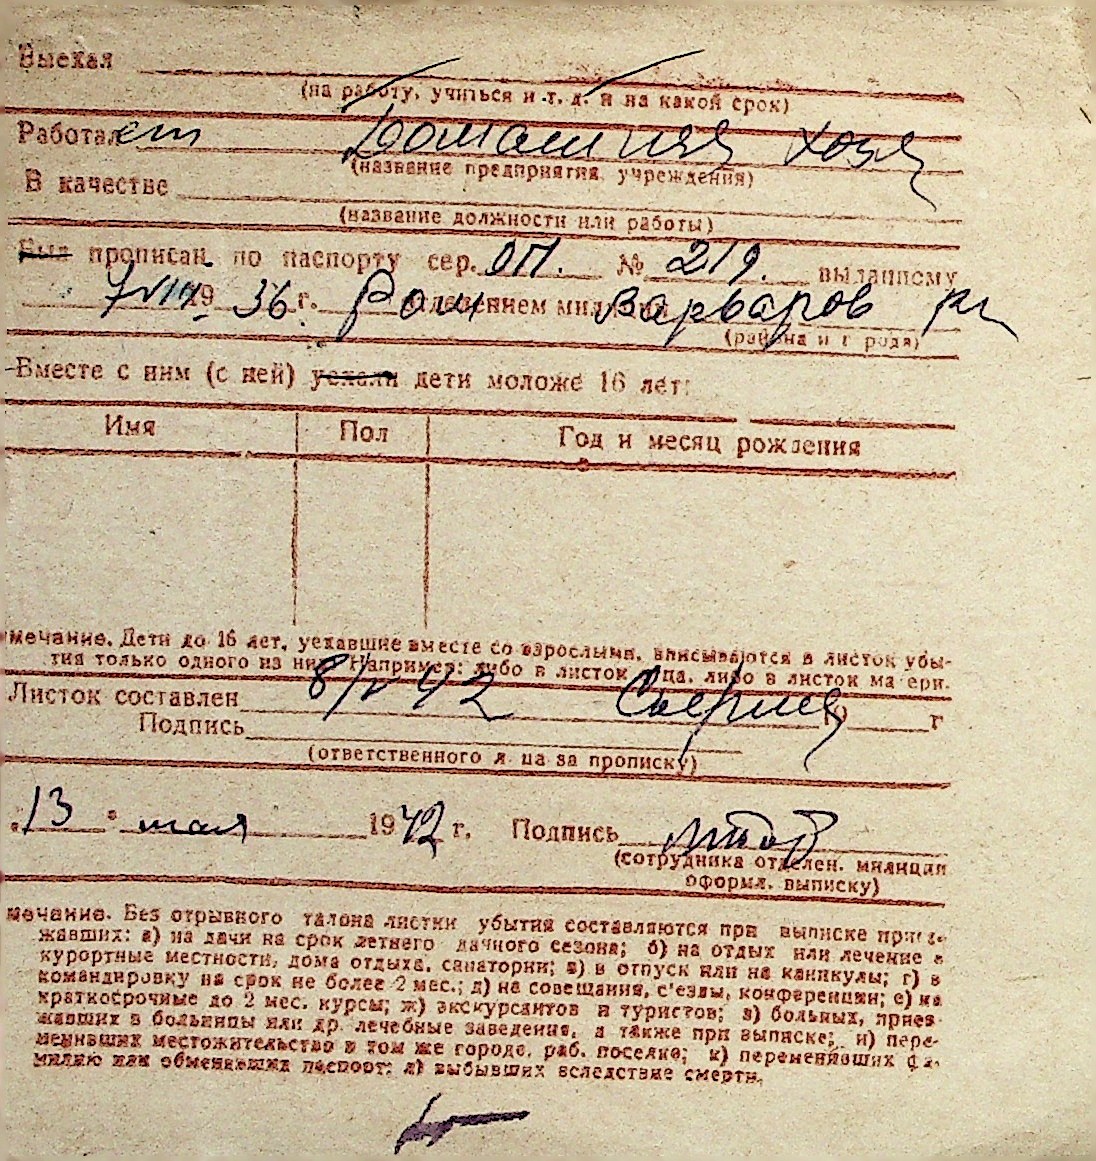 Выехал
(на работу, учиться и т. д. и на какой срок)
Работает Домашняя хозя
(название предприятия, учреждения)
В качестве
(название должности или работы)
Был прописан по паспорту сер. ОП. № 219. выданному
1936 г. отделением милиции Варваров
(района и города)
Вместе с ним (с ней) уехали дети моложе 16 лет:
Имя Пол Год и месяц рождения
мечание. Дети до 16 лет, уехавшие вместе со взрослыми, вписываются в листок убы-
тия только одного из них. Например: либо в листок отца, либо в листок матери.
Листок составлен 8/V 42 19 г
Подпись
(ответственного лица за прописку)
„13" мая 1942 г. Подпись
(сотрудника отделен. милиции
оформл. выписку)
мечание. Без отрывного талона листки убытия составляются при выписке приез-
жавших: а) на дачи на срок летнего дачного сезона; б) на отдых или лечение в
курортные местности, дома отдыха, санатории; в) в отпуск или на каникулы; г) в
командировку на срок не более 2 мес.; д) на совещания, с'езды, конференции; е) на
краткосрочные до 2 мес. курсы; ж) экскурсантов и туристов; з) больных, приез-
жавших в больницы или др. лечебные заведения, а также при выписке; и) пере-
менивших местожительство в том же городе, раб. поселке; к) переменивших фа-
милию или обменявших паспорт; л) выбывших вследствие смерти.